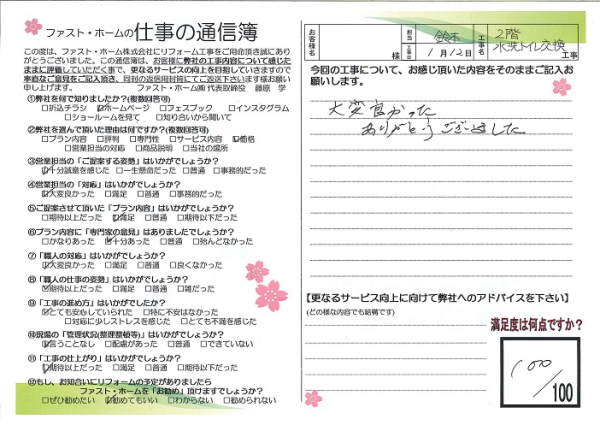 ファスト・ホームの仕事の通信簿
この度は、ファスト・ホーム株式会社にリフォーム工事をご用命頂き誠にあり
がとうございました。この通信簿は、お客様に弊社の工事内容について感じた
ままに評価していただく事で、更なるサービスの向上を目指していきますので
率直なご意見をご記入頂き、同封の返信用封筒にてご返送下さいます様お願い
申し上げます。 ファスト・ホーム㈱ 代表取締役 藤原 学
①弊社を何で知りましたか?(複数回答可)
□折込チラシ ☑ホームページ □フェスブック □インスタグラム
□ショールームを見て □知り合いから聞いて
②弊社を選んで頂いた理由は何ですか?(複数回答可)
□プラン内容 □評判 □専門性 □サービス内容 ☑価格
□営業担当の対応 □商品説明 □当社の場所
③営業担当の「ご提案する姿勢」はいかがでしょうか?
☑十分誠意を感じた □一生懸命だった □普通 □事務的だった
④営業担当の「対応」はいかがでしょうか?
☑大変良かった □満足 □普通 □事務的だった
⑤ご提案させて頂いた「プラン内容」はいかがでしょうか?
□期待以上だった ☑満足 □普通 □期待以下だった
⑥プラン内容に「専門家の意見」はありましたでしょうか?
□かなりあった ☑十分あった □普通 □殆んどなかった
⑦「職人の対応」はいかがでしょうか?
☑大変良かった □満足 □普通 □良くなかった
⑧「職人の仕事の姿勢」はいかがでしょうか?
☑期待以上だった □満足 □普通 □雑だった
⑨「工事の進め方」はいかがでしたか?
☑とても安心していられた □特に不安はなかった
□対応に少しストレスを感じた □とても不満を感じた
⑩現場の「管理状況(整理整頓等)」はいかがでしょうか?
☑言うことなし □配慮があった □普通 □できていない
⑪「工事の仕上がり」はいかがでしょうか?
☑期待以上だった □満足 □普通 □期待以下だった
⑫もし、お知合いにリフォームの予定がありましたら
ファスト・ホームを「お勧め」頂けますでしょうか?
□ぜひ勧めたい ☑勧めてもいい □わからない □勧められない
お客様名 様
担当 鈴木
工事日 1月12日
工事名 2階
水洗トイレ交換 工事
今回の工事について、お感じ頂いた内容をそのままご記入お
願いします。
大変良かった
ありがとうございました
【更なるサービス向上に向けて弊社へのアドバイスを下さい】
(どの様な内容でも結構です)
満足度は何点ですか?
100
/100